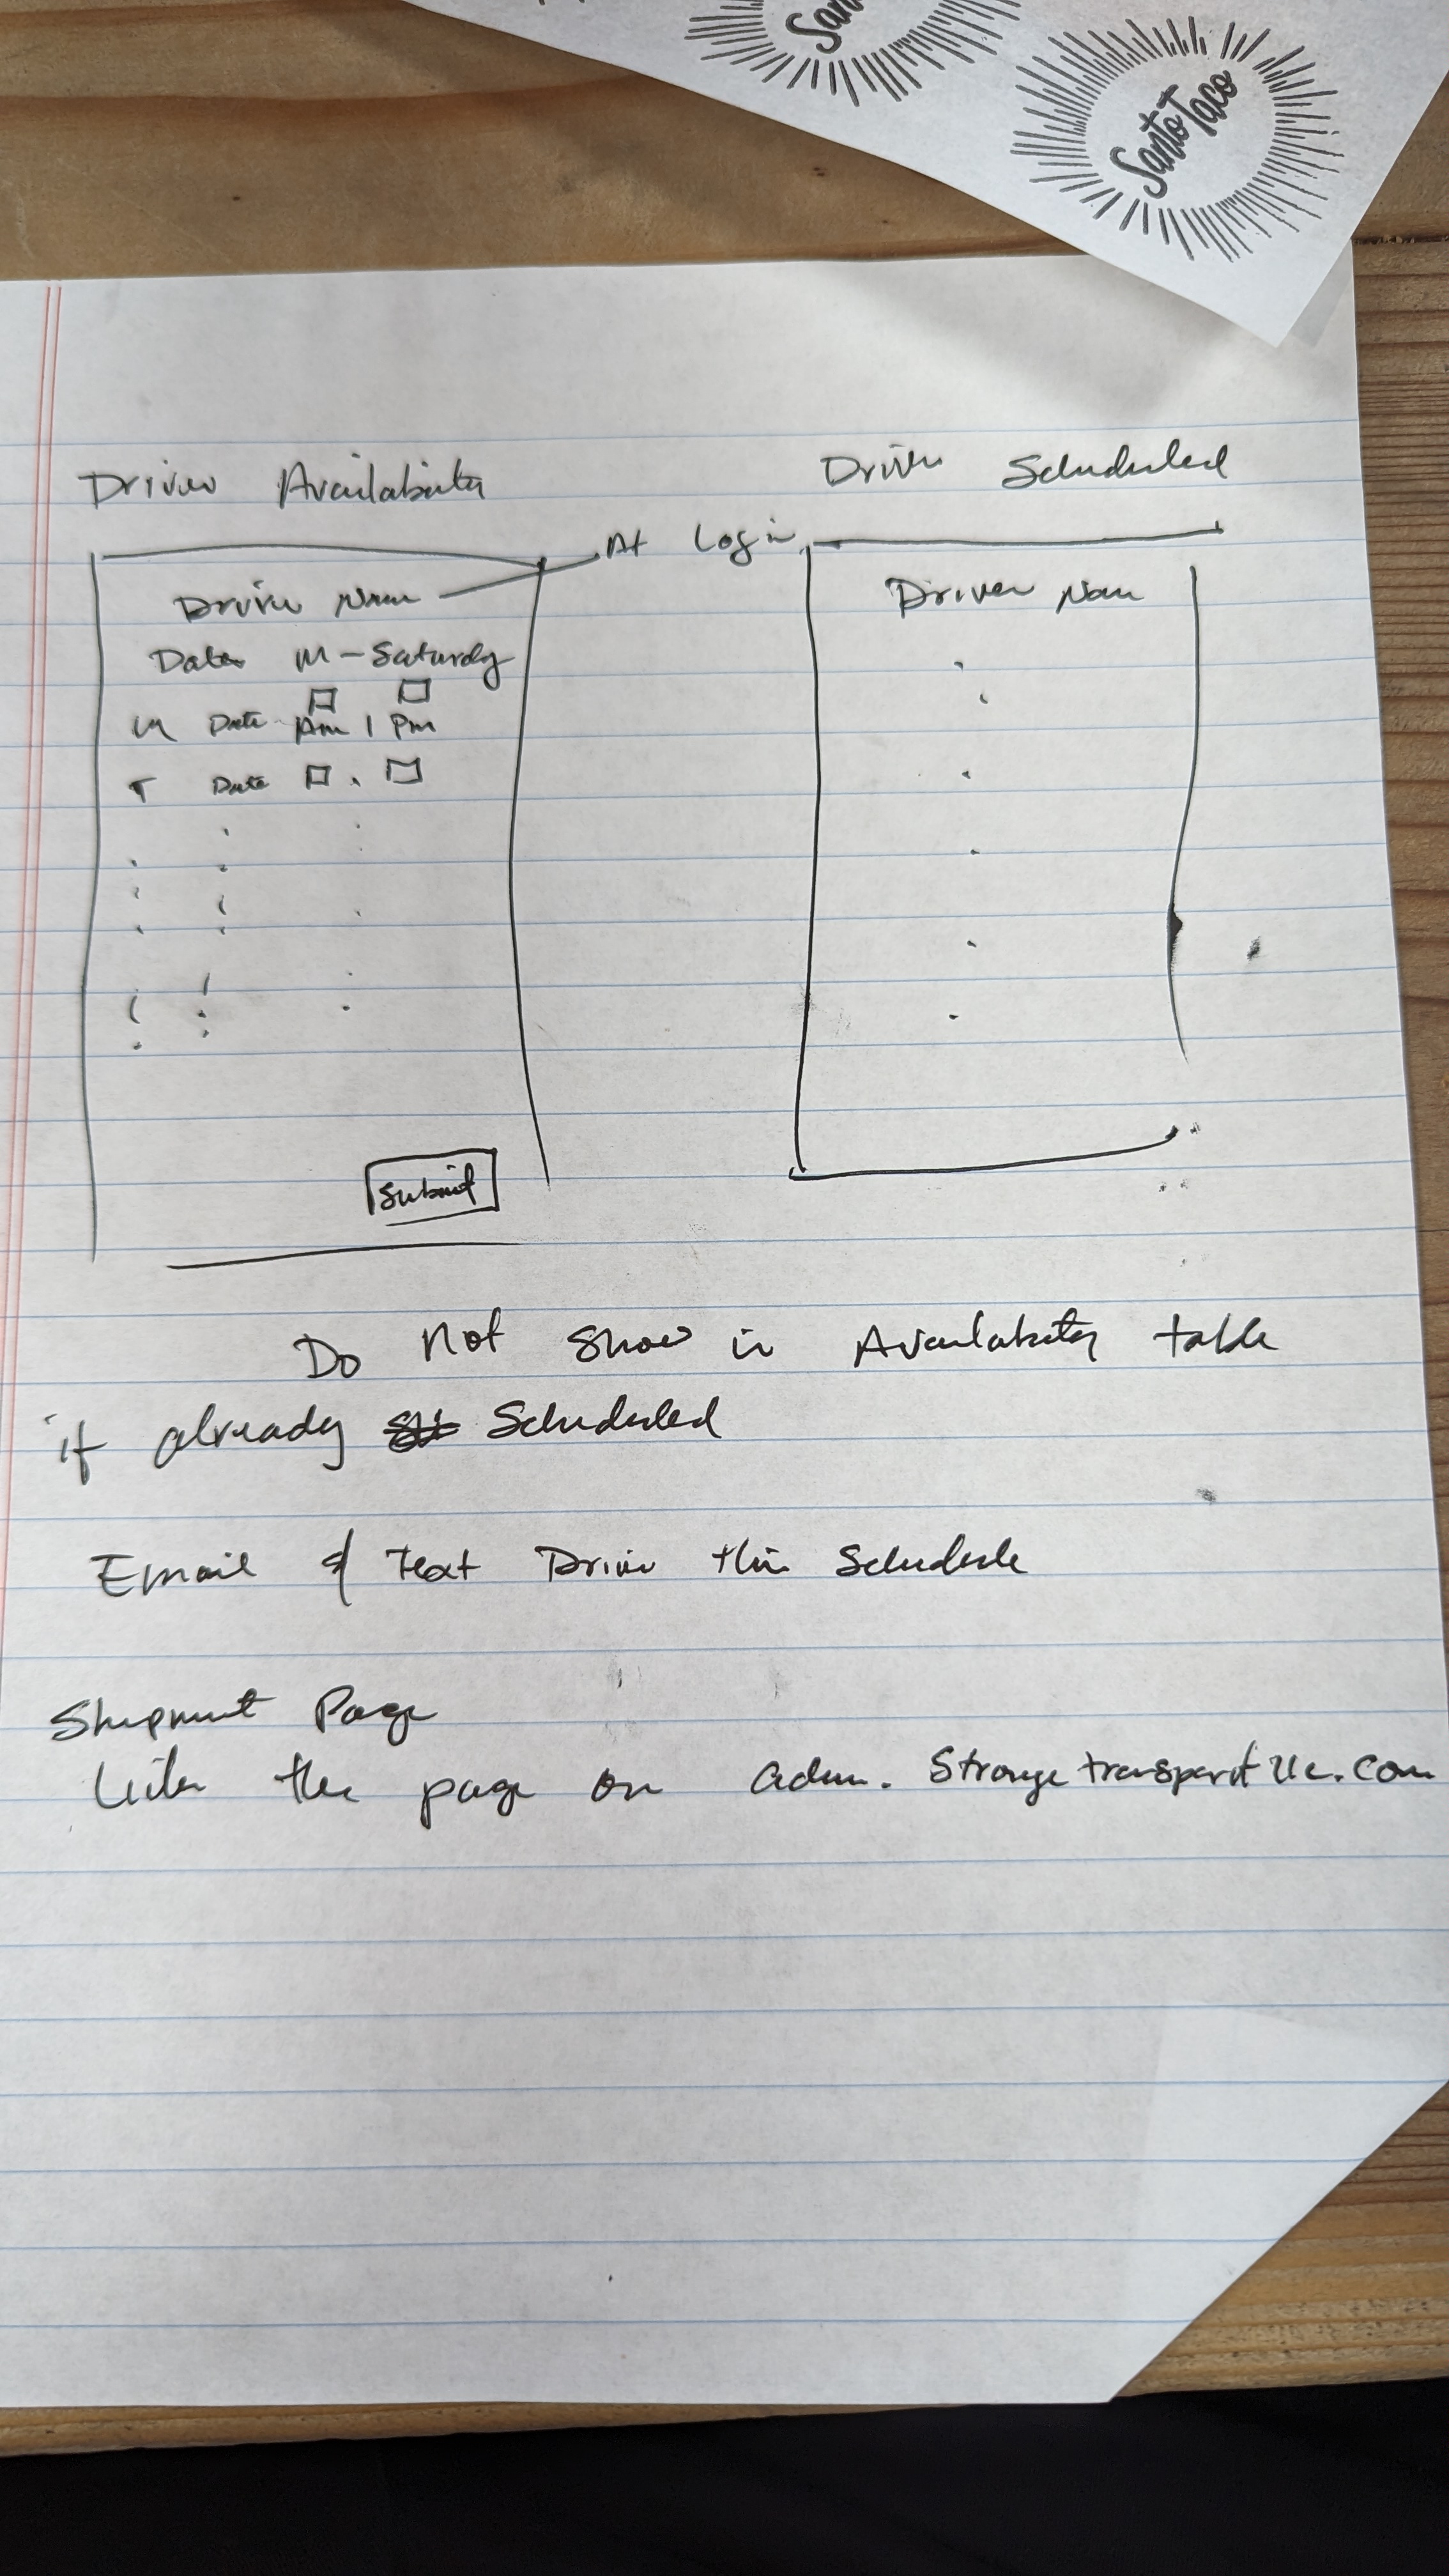 San
Santo Taco
Driver Availability
Driver Scheduled
At Login
Driver Name
Driver Name
Dates M - Saturday
M Date Am | Pm
T Date
Submit
Do Not Show in Availability table
if already Scheduled
Email & Text Driver this Schedule
Shipment Page
the page on adm. Strange transport llc. com